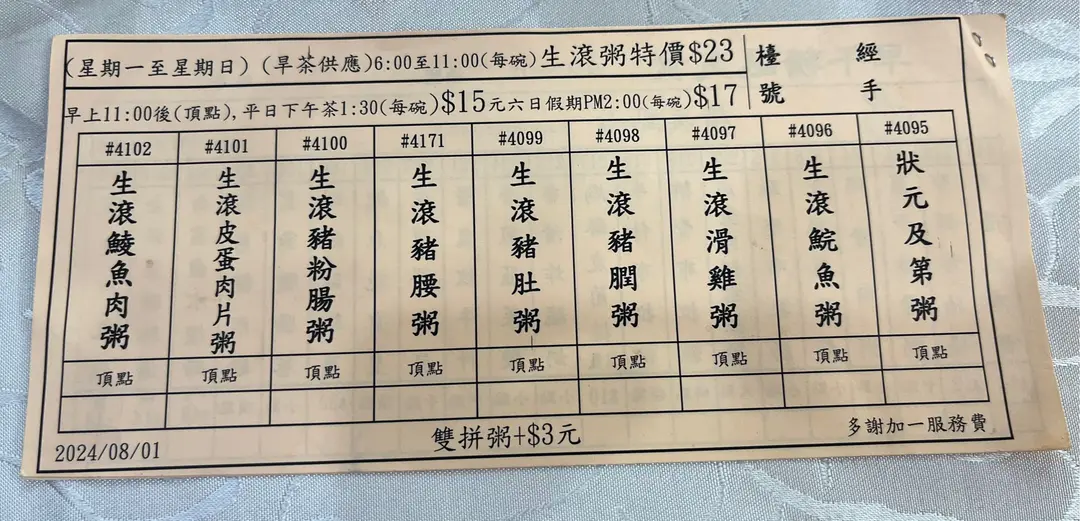 (星期一至星期日) (早茶供應)6:00至11:00(每碗)生滾粥特價$23
早上11:00後(頂點),平日下午茶1:30(每碗)$15元六日假期PM2:00(每碗)$17
檯號
經手
#4102
#4101
#4100
#4171
#4099
#4098
#4097
#4096
#4095
生滾鯪魚肉粥
生滾皮蛋肉片粥
生滾豬粉腸粥
生滾豬腰粥
生滾豬肚粥
生滾豬膶粥
生滾滑雞粥
生滾鯇魚粥
狀元及第粥
頂點
頂點
頂點
頂點
頂點
頂點
頂點
頂點
頂點
2024/08/01
雙拼粥+$3元
多謝加一服務費